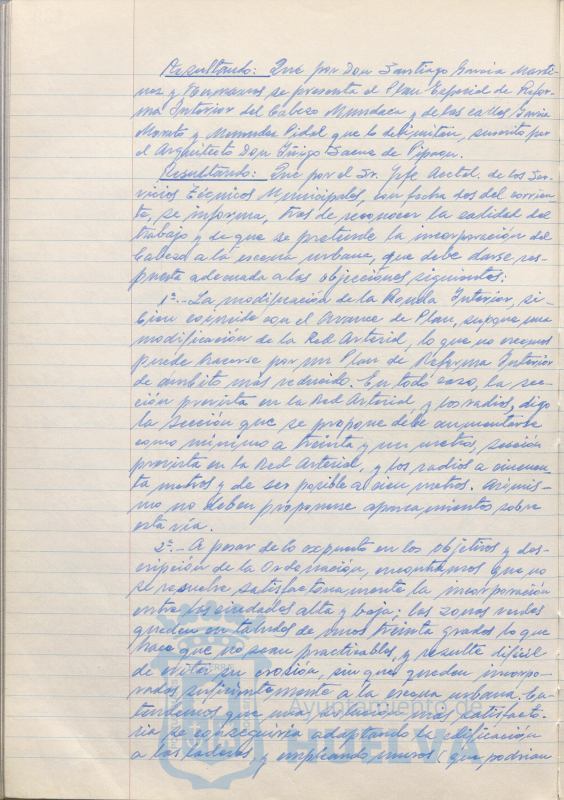 Resultando: Que por Don Santiago García Martí-
nez y Hermanos se presenta el Plan Especial de Refor-
ma Interior del Cabezo Mundaca y de las calles García
Morato y Menendez Pidal que lo delimitan, suscrito por
el Arquitecto Don Iñigo Saenz de Pipaon.
Resultando: Que por el Sr. Jefe Acctal. de los Ser-
vicios Técnicos Municipales, con fecha dos del corrien-
te, se informa, tras de reconocer la calidad del
trabajo y de que se pretende la incorporación del
Cabezo a la escena urbana, que debe darse res-
puesta adecuada a las objecciones siguientes:
1ª.- La modificación de la Ronda Interior, si
bien coincide con el Avance de Plan, supone una
modificación de la Red Arterial, lo que no creemos
puede hacerse por un Plan de Reforma Interior
de ámbito más reducido. En todo caso, la sec-
ción prevista en la Red Arterial y los radios, digo
la Sección que se propone debe aumentarse
como mínimo a treinta y un metros, sección
prevista en la Red Arterial, y los radios a cincuen-
ta metros y de ser posible a cien metros. Asimis-
mo no deben proponerse aparcamientos sobre
esta vía.
2ª.- A pesar de lo expuesto en los objetivos y des-
cripción de la Ordenación, encontramos que no
se resuelve satisfactoriamente la incorporación
entre las ciudades alta y baja; las zonas verdes
quedan en taludes de unos treinta grados lo que
hace que no sean practicables, y resulte difícil
de evitar su erosión, sin que queden incorpo-
rados suficientemente a la escena urbana. En-
tendemos que una solución más satisfacto-
ria se conseguiría adaptando la edificación
a las laderas, y empleando muros (que podrían
Ayuntamiento de
HUELVA